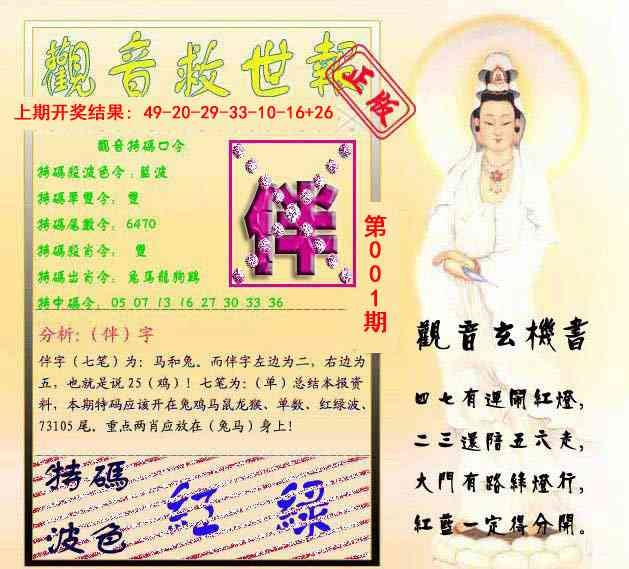 觀音救世報
正版
上期开奖结果: 49-20-29-33-10-16+26
觀音特碼口令
特碼殺波色令:藍波
特碼單雙令: 雙
特碼尾數令: 6470
特碼殺肖令: 雙
特碼出肖令: 兔馬龍狗鷄
特中碼令: 05 07 13 16 27 30 33 36
伴
第001期
分析:(伴)字
伴字(七笔)为:马和兔。而伴字左边为二,右边为
五,也就是说 25(鸡)!七笔为:(单)总结本报资
料,本期特码应该开在兔鸡马鼠龙猴、单数、红绿波、
73105 尾。重点两肖应放在(兔马)身上!
特碼
波色
紅 綠
觀音玄機書
四七有運鬧紅燈,
二三還陪五六走,
大門有路綠燈行,
紅藍一定得分開。